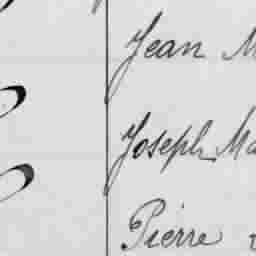 Jean M
Joseph Ma
Pierre